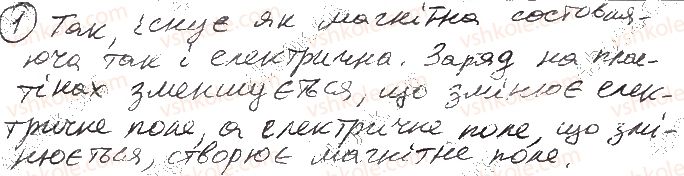 1 Так, існує як магнітна состовля-
юча так і електрична. Заряд на плас-
тінах зменшується, що змінює елек-
тричне поле, а електричне поле, що змі-
нюється, створює магнітне поле.